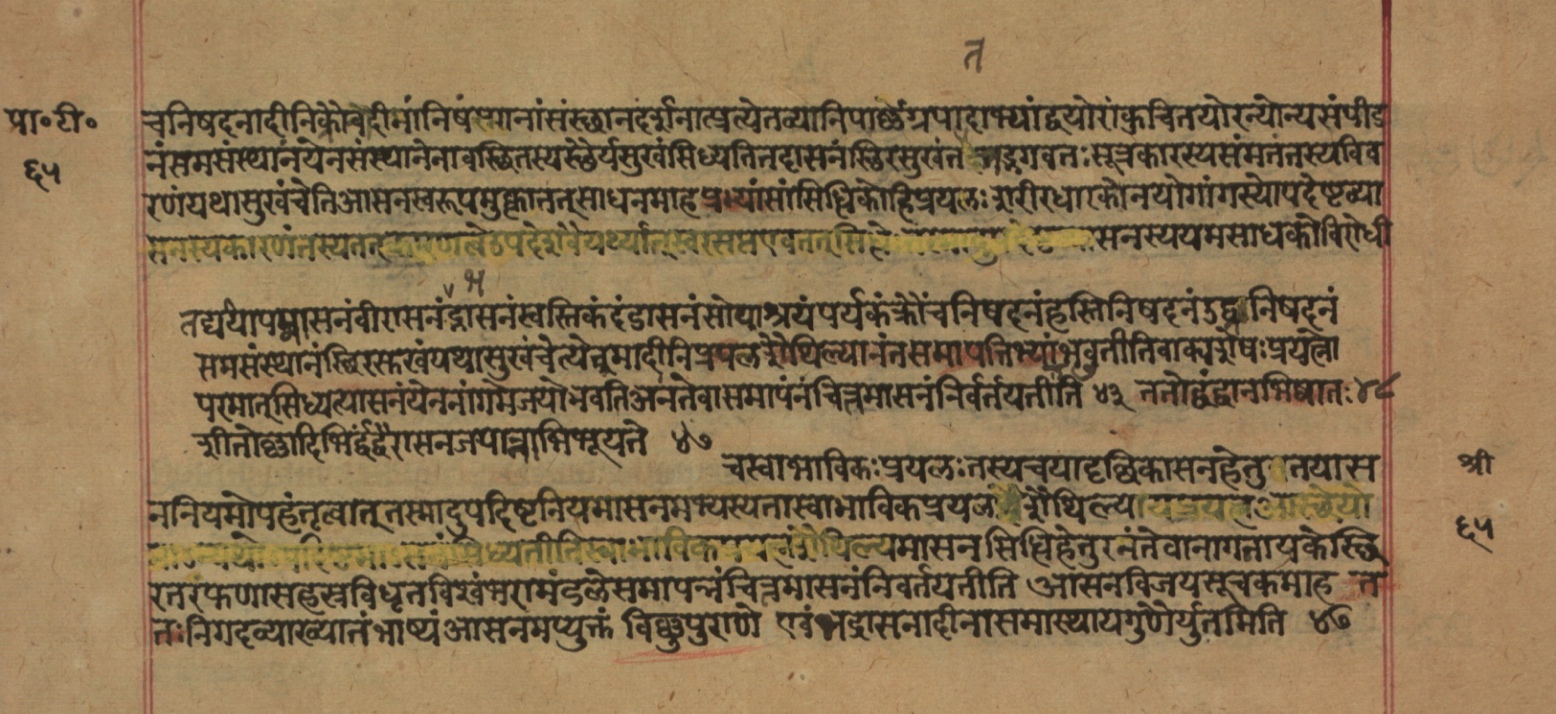 त
पा॰टी॰
६५
चनिषदनादीनिक्रौंचादीनांनिषंसानांसंस्छानदर्शनात्प्रत्येतव्यानिपार्ष्ण्यग्रपादाभ्यांद्वयोराकुंचितयोरन्योन्यसंपीड
नंसमसंस्थानंयेनसंस्थानेनावस्छितस्यस्छैर्यसुखंसिध्यतितदासनंस्छिरसुखंत भगवतःसूत्रकारस्यसंमतंतस्यविव
रणंयथासुखंचेतिआसनस्वरूपमुक्त्वातत्साधनमाहप्र भ्यांसांसिद्धिकोहिप्रयत्नःशरीरधारकोनयोगांगस्योपदेष्टव्या
सनस्यकारणंतस्यतत् उपदेशवैयर्थ्यात्स्वरसतएवतत्सिद्धे सनस्ययमसाधकोविरोधी
भ
तद्यथापद्मासनंवीरासनंद्रासनंस्वस्तिकंदंडासनंसोपाश्रयंपर्यकंक्रौंचनिषदनंहस्तिनिषदनंउष्ट्रनिषदनं
समसंस्थानंस्छिरसुखंयथासुखंचेत्येवमादीनिप्रयत्नशैथिल्यानंतसमापत्तिभ्यांभवतीतिवाक्यशेषःप्रयत्नो
परमात्सिध्यत्यासनंयेननांगमेजयोभवतिअनंतेवासमापंनंचित्तमासनंनिर्वर्तयतीति ४३ ततोद्वंद्वानभिघातः४८
शीतोष्णादिभिर्द्वंद्वैरासनजयान्नाभिभूयते ४७
चस्वाभाविकःप्रयत्नःतस्यचयादृछिकासनहेतु तयास
श्री
ननियमोपहंतृत्वात्तस्मादुपदिष्टनियमासनमभ्यस्यतास्वाभाविकप्रयत्नशैथिल्या
६५
सिध्यतीतिस्वाभाविकप्रयत्नशैथिल्यमासनसिद्धिहेतुरनंतेवानागनायकेस्छि
रतरफणासहस्रविधृतविश्वंभरामंडलेसमापन्नंचित्तमासनंनिवर्तयतीति आसनविजयसूचकमाह त
तःनिगदव्याख्यातंभाष्यंआसनमप्युक्तं विष्णुपुराणे एवंभद्रासनादीनासमास्थायगुणैर्युतमिति ४७